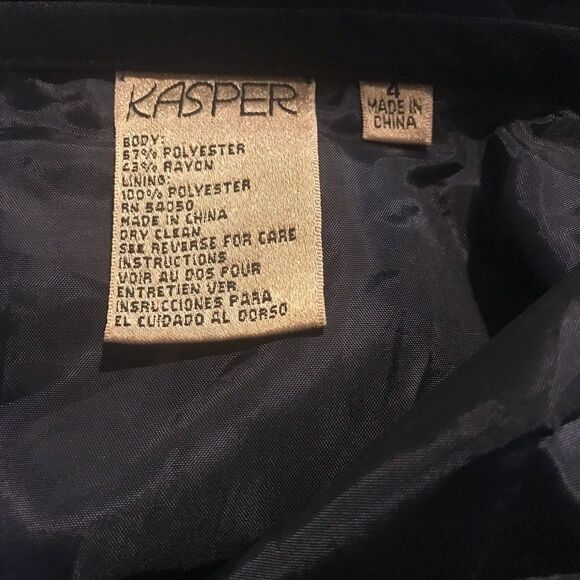 KASPER
BODY:
67% POLYESTER
RAYON
LINING:
100% POLYESTER
RN 54050
MADE IN CHINA
DRY CLEAN
SEE REVERSE FOR CARE
INSTRUCTIONS
VOIR AU DOS POUR
ENTRETIEN VER
INSRUCCIONES PARA
EL CUIDADO AL DORSO
4
MADE IN
CHINA